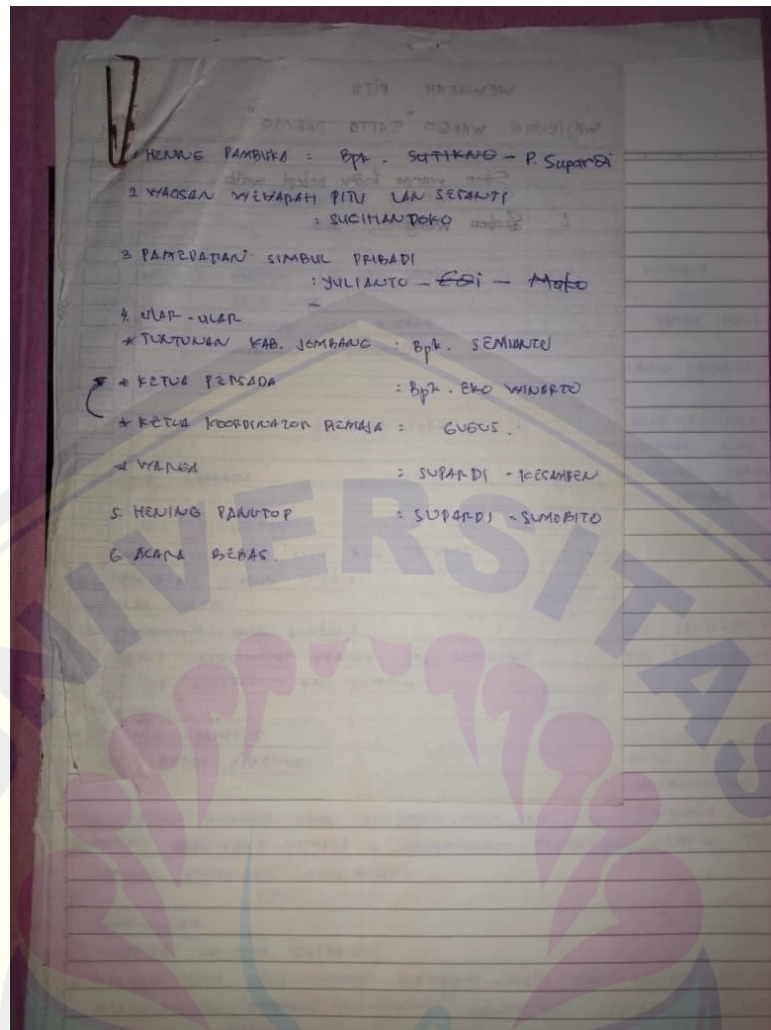 1. HENING PAMBUKA : Bpk. SUTIKNO - P. Supardi
2 WAOSAN WEWARAH PITU LAN SESANTI
: SUCIHANDOKO
3 PAMEDARAN SIMBUL PRIBADI
: YULIANTO - EDi - Moko
4. ULAR-ULAR
* TUNTUNAN KAB. JOMBANG : Bpk. SEMIANTO
* KETUA PERSADA : Bpk. EKO WINARTO
* KETUA KOORDINATOR REMAJA : GUGUS.
* WARGA : SUPARDI - KESAMBEN
5. HENING PANUTOP : SUPARDI - SUMOBITO
6 ACARA BEBAS.
UNIVERSITAS